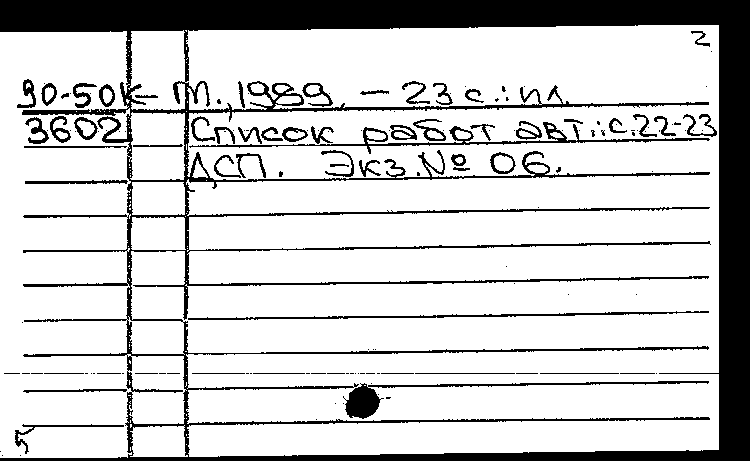 2
90-50К- Т., 1989. - 23 с.: ил.
3602 Список работ авт.: с. 22-23
ДСП. Экз. № 06.
5